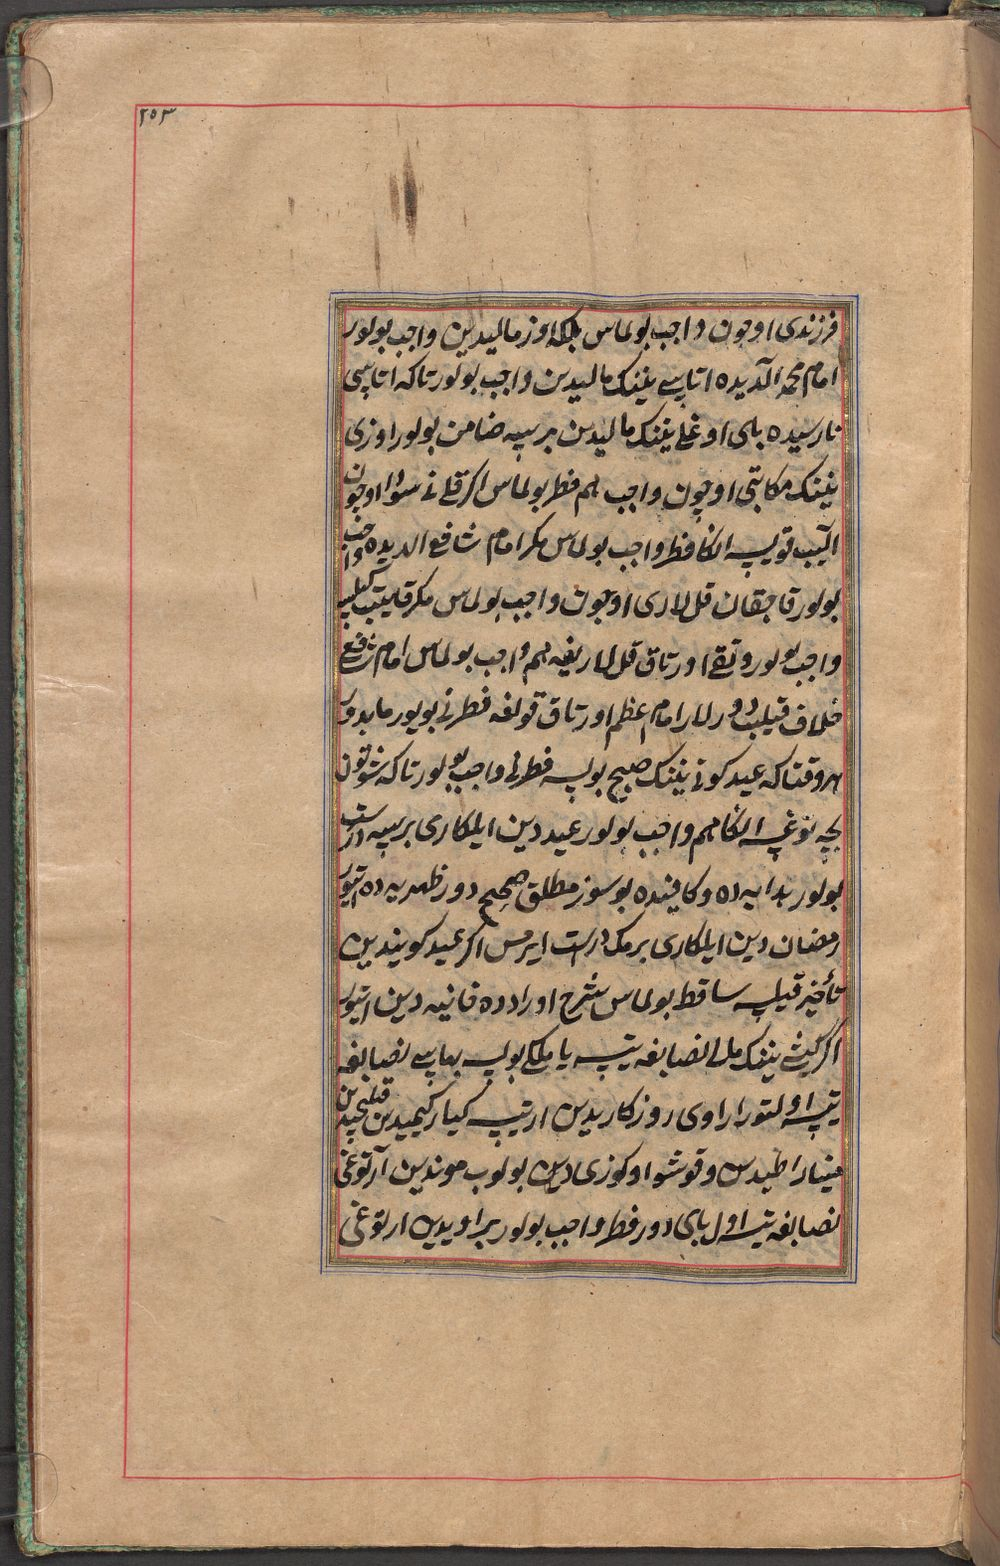 ٢٥٣
فرزندی اوچون واجب بولماس بلکه اوز مالیدین واجب بولور
امام محمد آلدیده اتاسی نینک مالیدین واجب بولور تاکه اتاسی
نارسیده بای اوغلی نینک مالیدین برسه ضامن بولور اوزی
نینک مکاتبی اوچون واجب هم فطر بولماس اکر قلنی سودا اوچون
الیب قویسه انکا فطر واجب بولماس مکر امام شافع الدیده واجب
بولور قاچقان قل لاری اوچون واجب بولماس مکر قایتیب کیلیب
واجب بولور و تقی اورتاق قل لاریغه هم واجب بولماس امام شافع
خلاف قیلیب دورلار امام اعظم اورتاق قولغه فطرنی بویورمایدور
هر وقتا که عید کونی نینک صبیح بولسه فطرنی واجب بولور تاکه شو تون
بچه توغسه انکا هم واجب بولور عید دین ایلکاری برسه درست
بولور هدایه ده و کافیده بو سوز مطلق صحیح دور ظهریه ده ایتیور
رمضان دین ایلکاری برمک درست ایرمس اکر عید کونیدین
تأخیر قیلسه ساقط بولماس شرح اوراد ده خانیه دین ایتیور
اکر کیشی نینک مل انصابغه یتسه یا ملکی بولسه بهاسی نصابغه
یتسه اولتورار اوی روزکاریدین ارتیب کیار کیمیدین قیلیچیدین
مینار اطیدین و قوشو اوکوزی دین بولوب موندین آرتوغی
نصابغه یتسه اول بای دور فطر واجب بولور بر اویدین ارتوغی